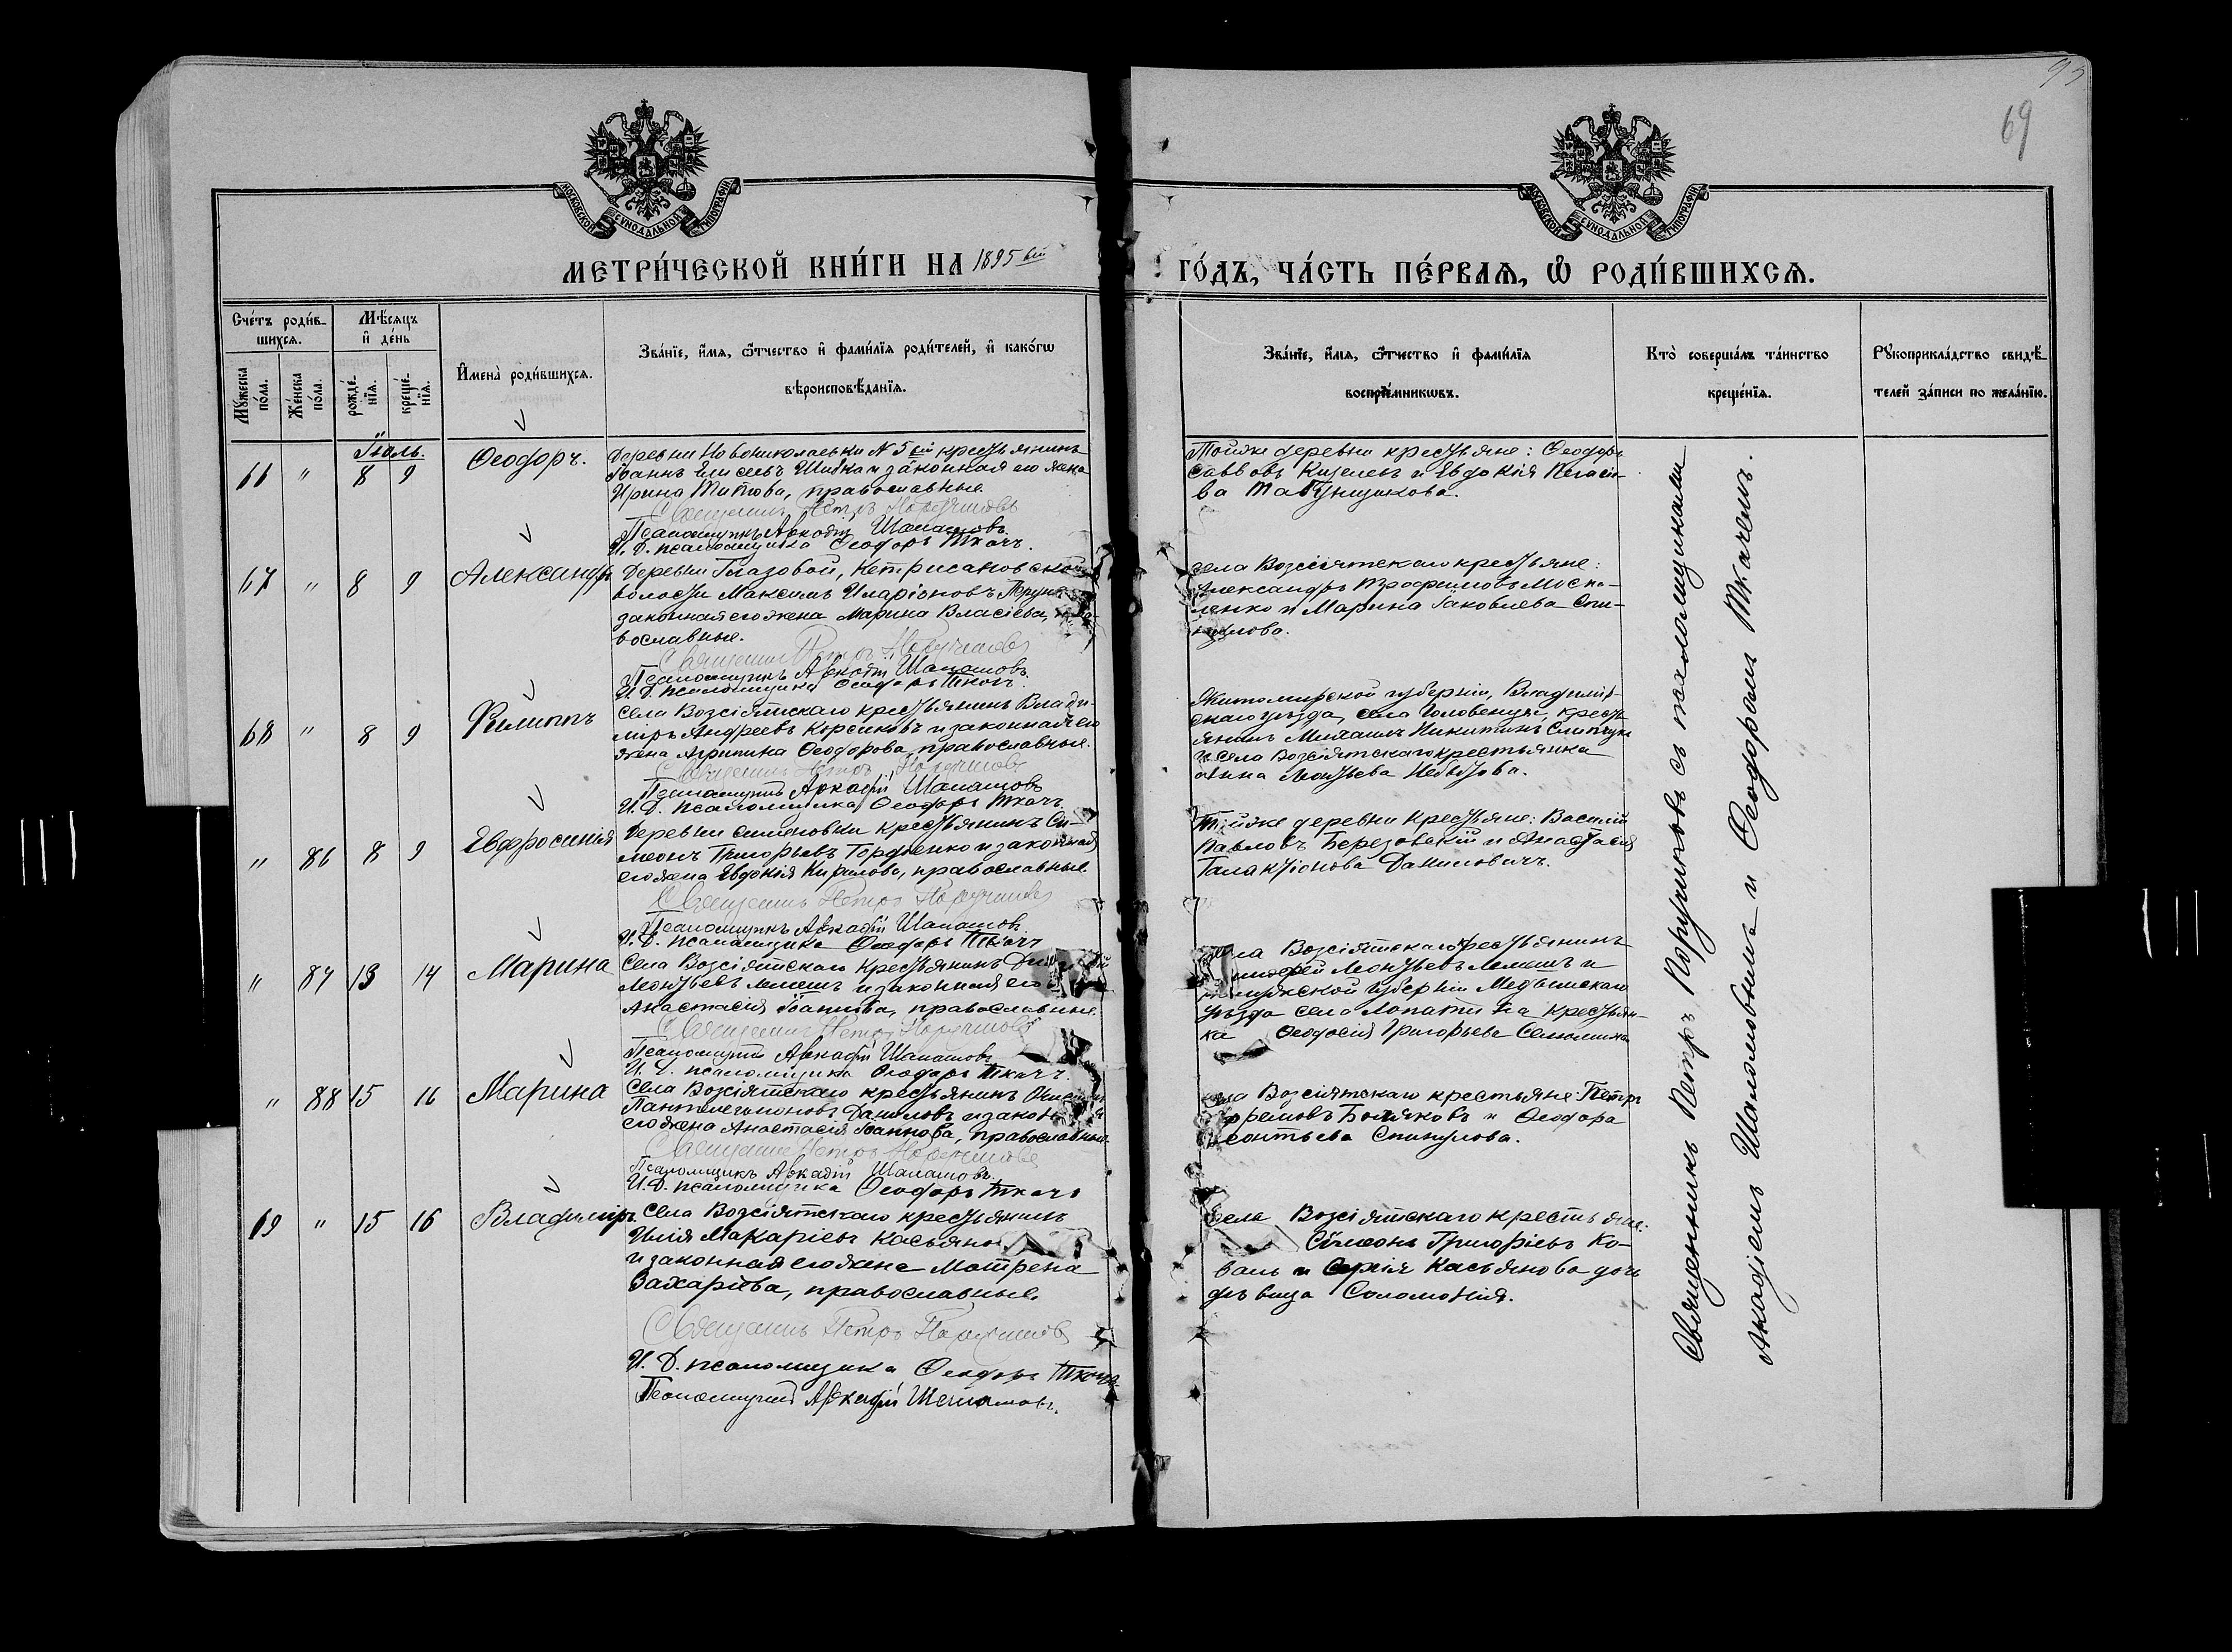 69
МОСКОВСКОЙ СѴНОДАЛЬНОЙ ТИПОГРАФІИ
МОСКОВСКОЙ СѴНОДАЛЬНОЙ ТИПОГРАФІИ
МЕТРИ́ЧЕСКОЙ КНИ́ГИ НА 1895 ый ГО́ДЪ, ЧА́СТЬ ПЕ́РВАѦ, Ѡ҆ РОДИ́ВШИХСѦ.
Сче́тъ роди́в-
шихсѧ.
Мѣ́сѧцъ
и҆ де́нь
Мꙋ́жеска
по́ла.
Же́нска
по́ла.
рожде́-
нїѧ.
креще́-
нїѧ.
И҆мена̀ роди́вшихсѧ.
Зва́нїе, и҆́мѧ, ѻ҆́тчество и҆ фами́лїѧ роди́телей, и҆ како́гѡ
вѣроисповѣ́данїѧ.
Зва́нїе, и҆́мѧ, ѻ҆́тчество и҆ фами́лїѧ
воспрїе́мникѡвъ.
Кто̀ соверша́лъ та́инство
креще́нїѧ.
Рꙋкоприкла́дство свидѣ́-
телей за́писи по жела́нїю.
Іюль.
66 " 8 9 Ѳеодоръ.
Деревни Новониколаевки № 5 ой крестьянинъ
Іоаннъ Елисеевъ и законная его жена
Ирина Титова, православные.
Священникъ Петръ Поручиковъ
Псаломщикъ Аркадій Шаламовъ.
И. Д. псаломщика Ѳеодоръ Ткачъ.
Тойже деревни крестьяне: Ѳеодоръ
Саввовъ Киселевъ и Евдокія
ва Табунщикова.
67 " 8 9 Александръ
Деревни Глазовой, Кетрисановской
волости Максимъ Иларіоновъ
законная его жена Марина Власіева, пра-
вославные.
Священникъ Петръ Поручиковъ
Псаломщикъ Аркадій Шаламовъ.
И. Д. псаломщика Ѳеодоръ Ткачъ.
села Возсіятскаго крестьяне:
Александръ Трофимовъ Моска-
ленко и Марина Іаковлева Спи-
68 " 8 9 Филиппъ
Села Возсіятскаго крестьянинъ Влади-
міръ Андреевъ Корсиковъ и законная его
жена Агрипина Ѳеодорова, православные.
Священникъ Петръ Поручиковъ
Псаломщикъ Аркадій Шаламовъ
И. Д. псаломщика Ѳеодоръ Ткачъ.
Житомирской губерніи,
скаго уѣзда, села кресть-
янинъ Михаилъ Никитинъ
и села Возсіятскаго крестьянка
Анна Леонтьева
" 86 8 9 Евфросинія
Деревни Симоновки крестьянинъ Си-
меонъ Григорьевъ Гордіенко и законная
его жена Евдокія Кирилова, православные.
Священникъ Петръ Поручиковъ
Псаломщикъ Аркадій Шаламовъ.
И. Д. псаломщика Ѳеодоръ Ткачъ
Тойже деревни крестьяне: Василій
Павловъ Березовскій и Анастасія
Галактіонова Даниловичъ.
" 87 13 14 Марина
Села Возсіятскаго крестьянинъ
Леонтьевъ Лемешъ и законная его
Анастасія Іоаннова, православные.
Священникъ Петръ Поручиковъ
Псаломщикъ Аркадій Шаламовъ.
И. Д. псаломщика Ѳеодоръ Ткачъ.
села Возсіятскаго крестьянинъ
Леонтьевъ Лемешъ и
губерніи
уѣзда село Лопатинка крестьян-
ка Ѳеодосія Григорьева
" 88 15 16 Марина
Села Возсіятскаго крестьянинъ
Пантелеимоновъ Даниловъ и законная
его жена Анастасія Іоаннова, православные
Священникъ Петръ Поручиковъ
Псаломщикъ Аркадій Шаламовъ.
И. Д. псаломщика Ѳеодоръ Ткачъ
села Возсіятскаго крестьяне: Петръ
и Ѳеодора
Леонтьева
69 " 15 16 Владиміръ.
Села Возсіятскаго крестьянинъ
Илія Макаріевъ
и законная его жена Матрена
Захаріева, православные.
Священникъ Петръ Поручиковъ
И. Д. псаломщика Ѳеодоръ Ткачъ
Псаломщикъ Аркадій Шаламовъ.
Села Возсіятскаго крестьяне:
Симеонъ Григоріевъ Ко-
валь и Касьянова дочь
дѣвица Соломонія.
Священникъ Петръ Поручиковъ съ псаломщиками
Аркадіемъ Шаламовымъ и Ѳеодоромъ Ткачемъ.